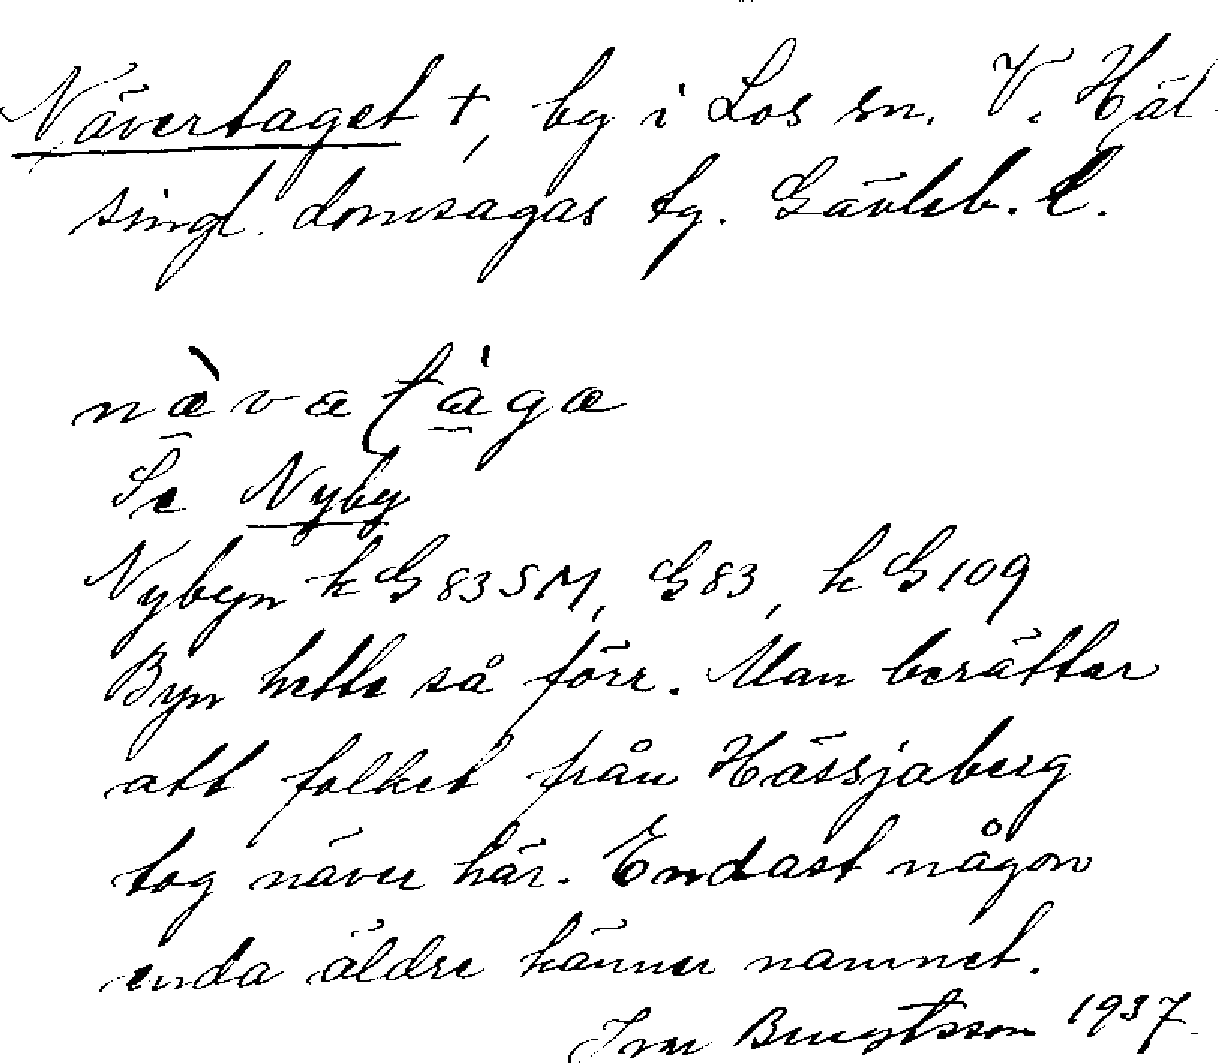 Nävertaget +, by i Los sn. V. Häl-
singl. domsagas tg. Gävleb. l.
nævataga
Se Nyby
Nybyn k G 83 SM, G 83, k G 109
Byn hette så förr. Man berättar
att folket från Hässjaberg
tog näver här. Endast någon
enda äldre känner namnet.
Ivar Bengtsson 1937